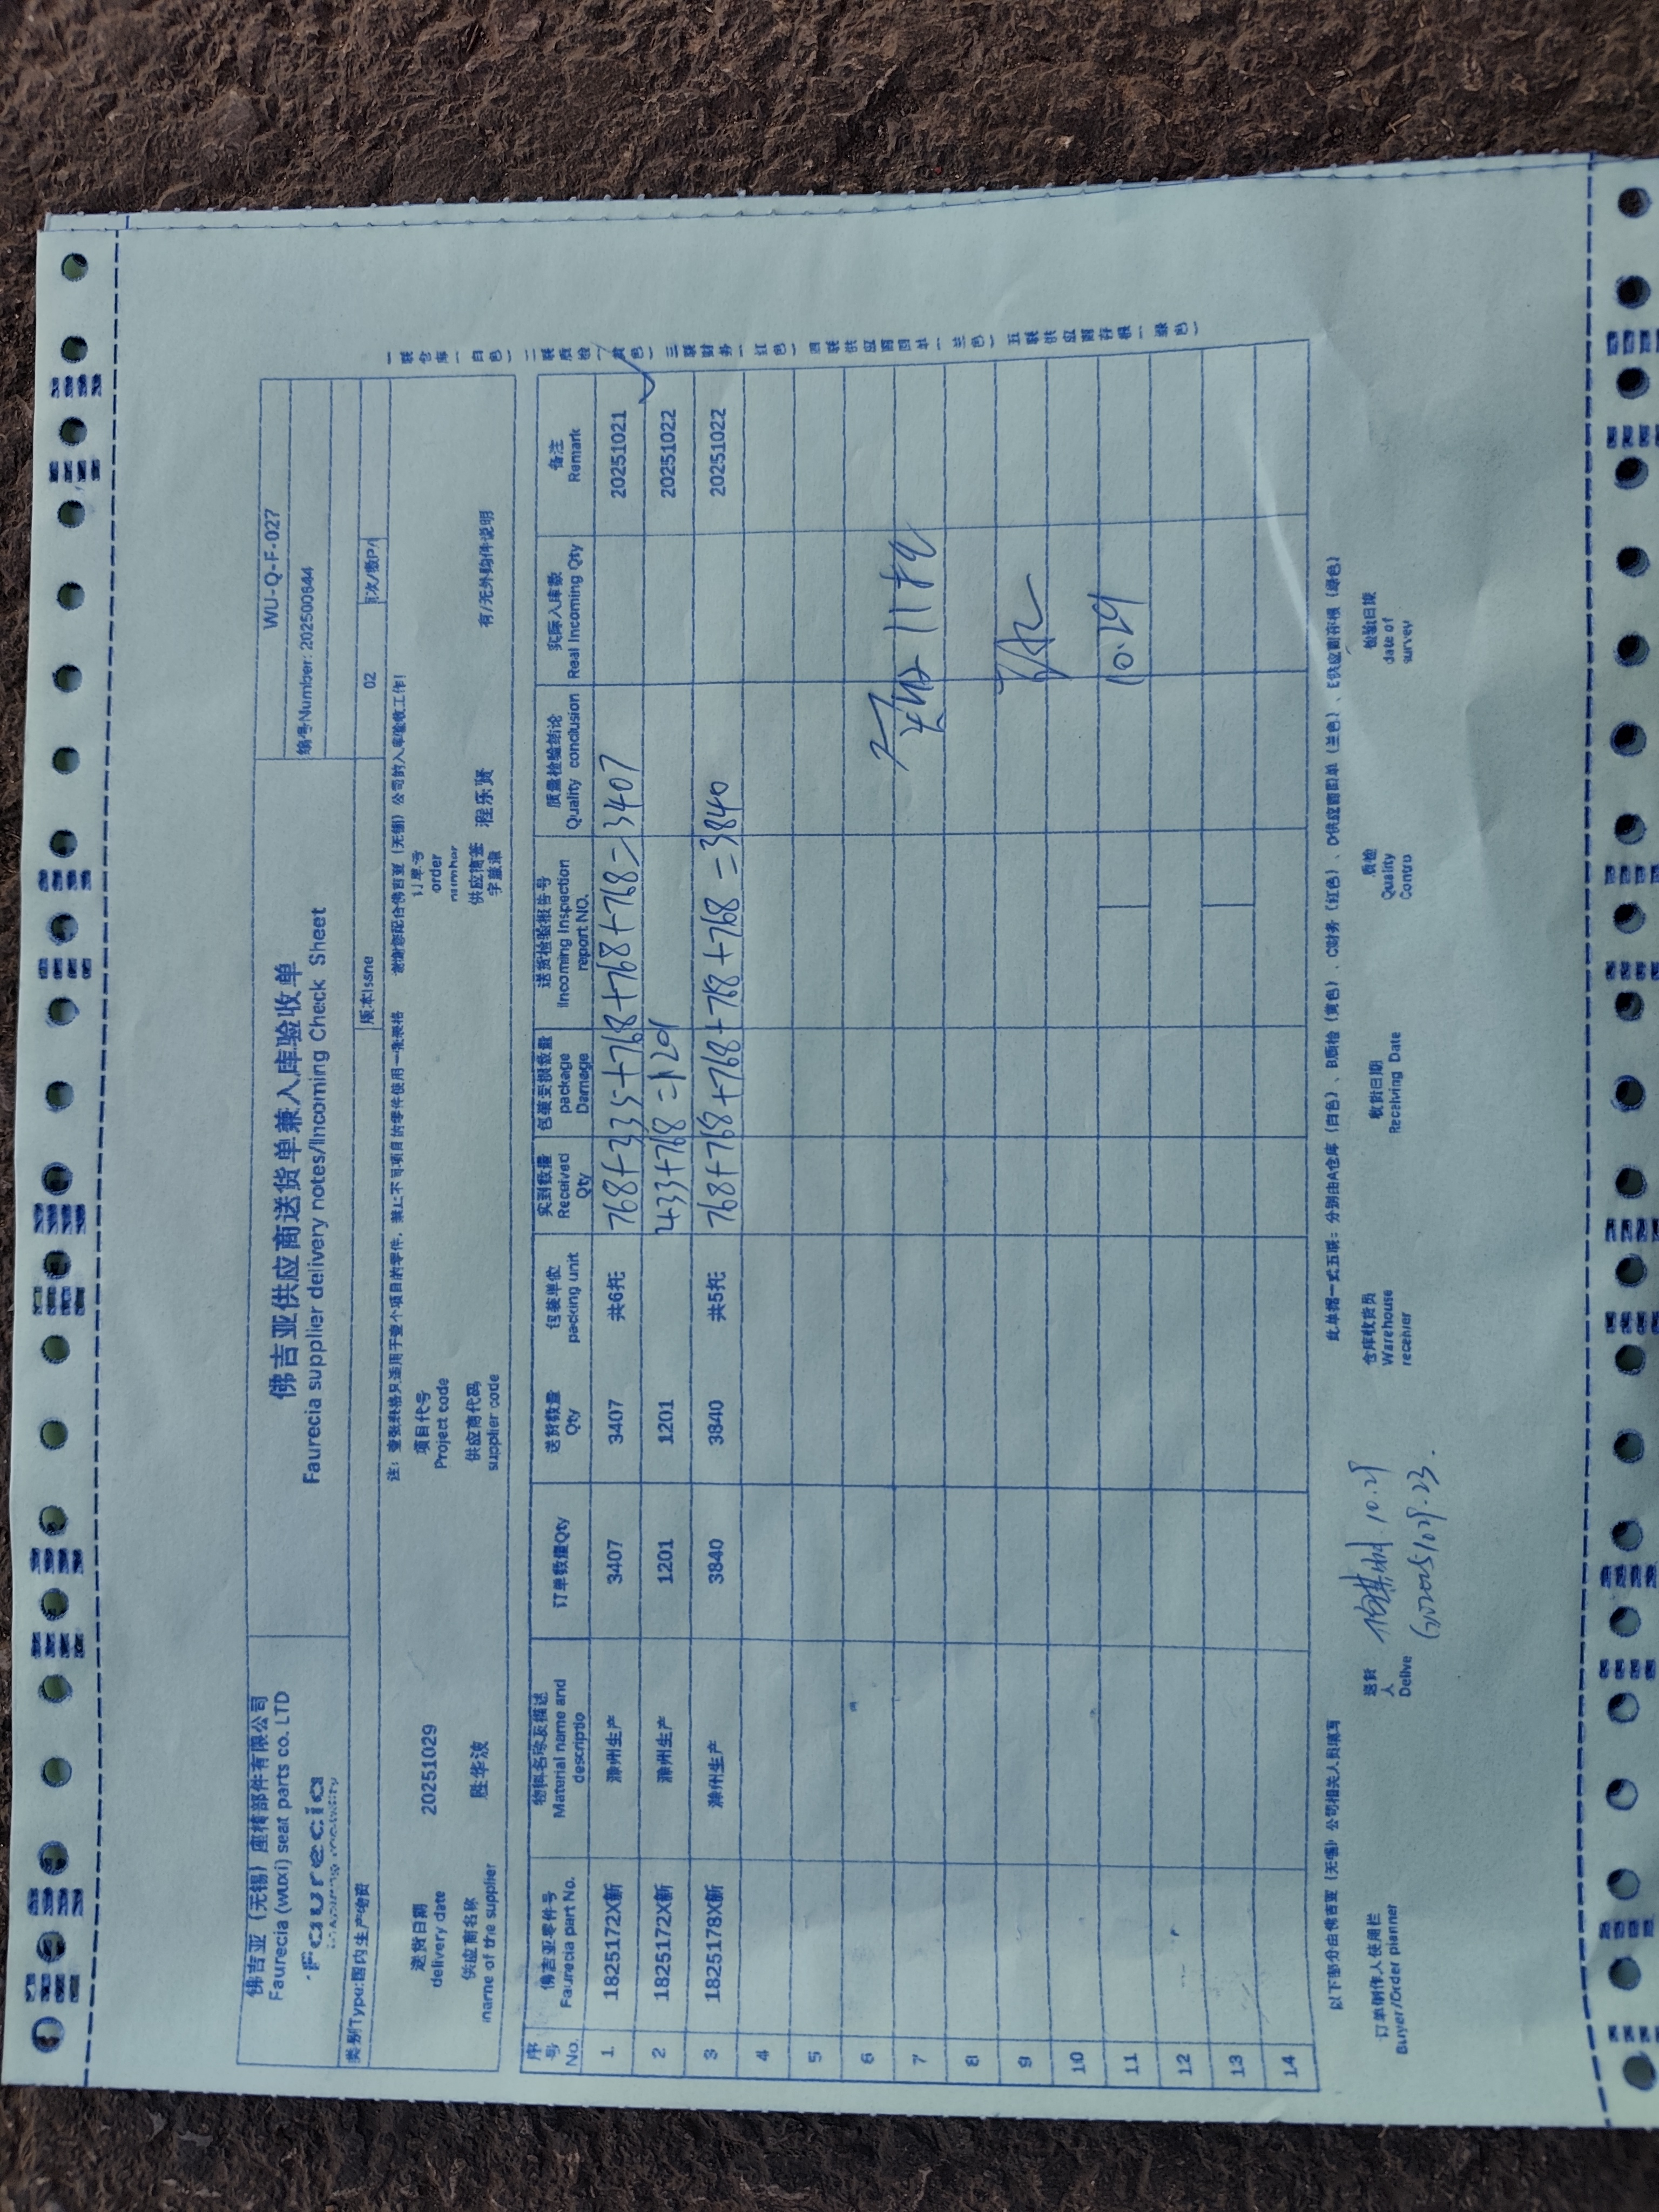 佛吉亚（无锡）座椅部件有限公司
Faurecia (wuxi) seat parts co. LTD
faurecia
佛吉亚供应商送货单兼入库验收单
Faurecia supplier delivery notes/Incoming Check Sheet
WU-Q-F-027
编号Number: 202500644
类别Type:国内生产物资
版本Issne
02
页次/数P/
注：壹张表格只适用于壹个项目的零件，禁止不同项目的零件使用一张表格 谢谢您配合佛吉亚（无锡）公司的入库验收工作！
送货日期
delivery date
20251029
项目代号
Project code
订单号
order
number
供应商名称
name of the supplier
胜华波
供应商代码
supplier code
供应商签
字盖章
程乐贤
有/无外购件说明
序号 No. 佛吉亚零件号 Faurecia part No. 物料名称及描述 Material name and descriptio 订单数量Qty 送货数量 Qty 包装单位 packing unit 实到数量 Received Qty 包装受损数量 package Damage 送货检验报告号 Incoming Inspection report NO. 质量检验结论 Quality conclusion 实际入库数 Real Incoming Qty 备注 Remark
1 1825172X新 滁州生产 3407 3407 共6托 768+335+768+768+768=3407 20251021
2 1825172X新 滁州生产 1201 1201 433+768=1201 20251022
3 1825178X新 滁州生产 3840 3840 共5托 768+768+768+768+768=3840 20251022
4
5
6
7
共收11托
8
9
10
11
10.29
12
13
14
一联仓库（白色）二联质检（黄色）三联财务（红色）四联供应商回单（兰色）五联供应商存根（绿色）
以下部分由佛吉亚（无锡）公司相关人员填写
此单据一式五联：分别由A仓库（白色）、B质检（黄色）、C财务（红色）、D供应商回单（兰色）、E供应商存根（绿色）
订单制作人使用栏
Buyer/Order planner
送货人
Delive
10.29
仓库收货员
Warehouse
receiver
收货日期
Receiving Date
质检
Quality
Contro
检验日期
date of
survey